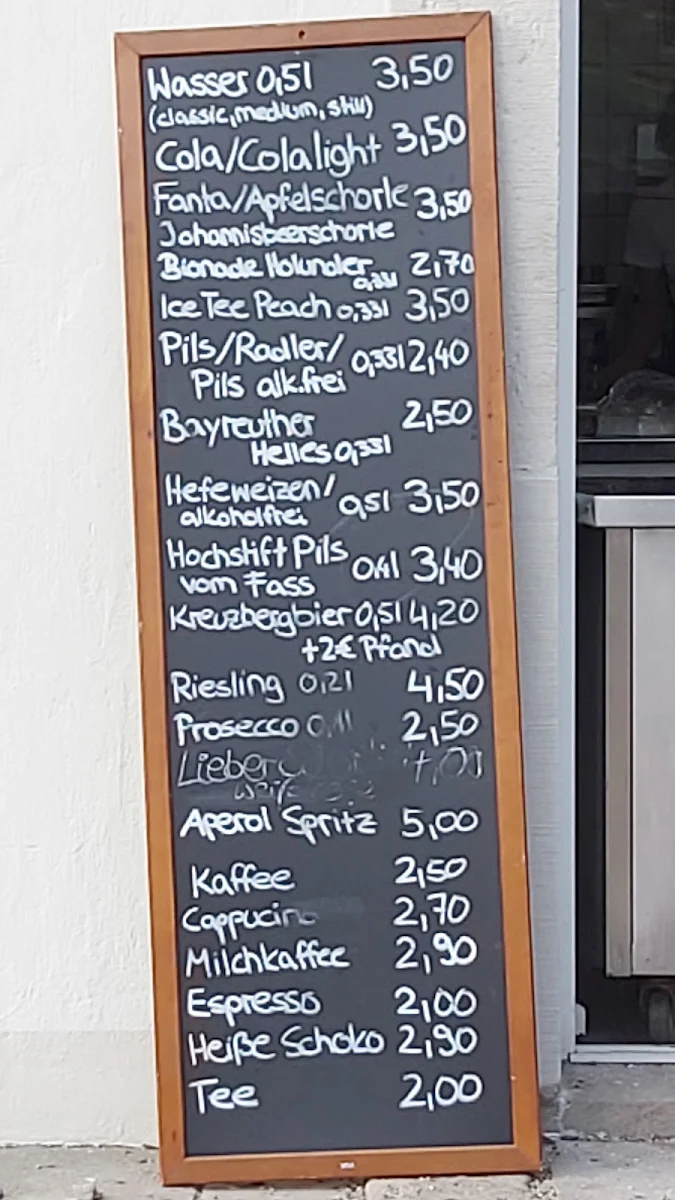 Wasser 0,5l 3,50
(classic, medium, still)
Cola/Cola light 3,50
Fanta/Apfelschorle 3,50
Johannisbeerschorle
Bionade Holunder 0,33l 2,70
Ice Tee Peach 0,33l 3,50
Pils/Radler/ 0,33l 2,40
Pils alk.frei
Bayreuther 2,50
Helles 0,33l
Hefeweizen/ 0,5l 3,50
alkoholfrei
Hochstift Pils 0,4l 3,40
vom Fass
Kreuzbergbier 0,5l 4,20
+2€ Pfand
Riesling 0,2l 4,50
Prosecco 0,1l 2,50
Aperol Spritz 5,00
Kaffee 2,50
Cappucino 2,70
Milchkaffee 2,90
Espresso 2,00
Heiße Schoko 2,90
Tee 2,00